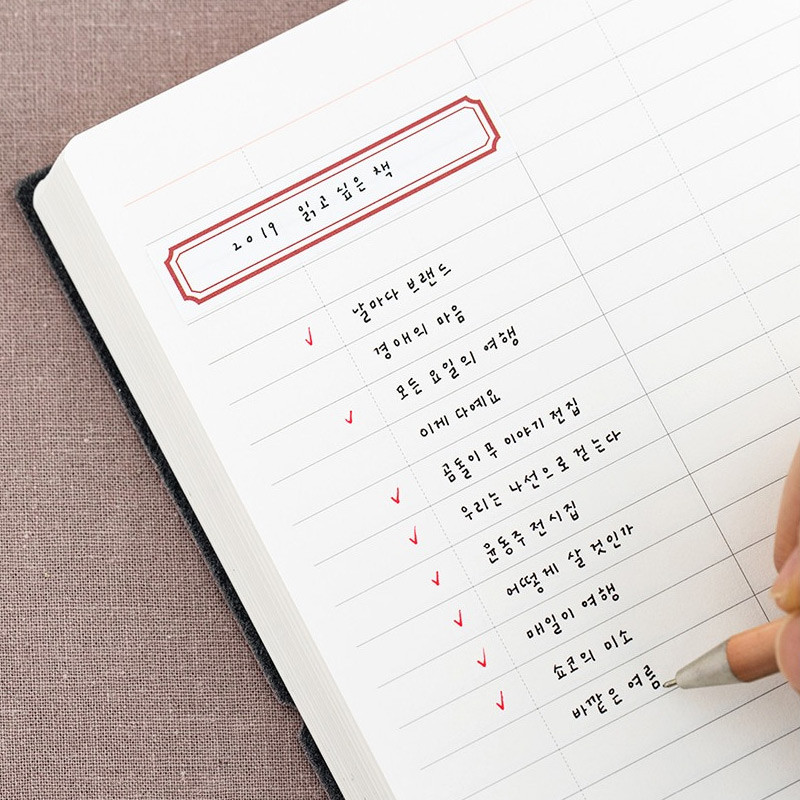 2019 읽고 싶은 책
✓ 날마다 브랜드
경애의 마음
✓ 모든 요일의 여행
이게 다예요
✓ 곰돌이 푸 이야기 전집
✓ 우리는 나선으로 걷는다
✓ 윤동주 전 시집
✓ 어떻게 살 것인가
✓ 매일이 여행
✓ 쇼코의 미소
바깥은 여름